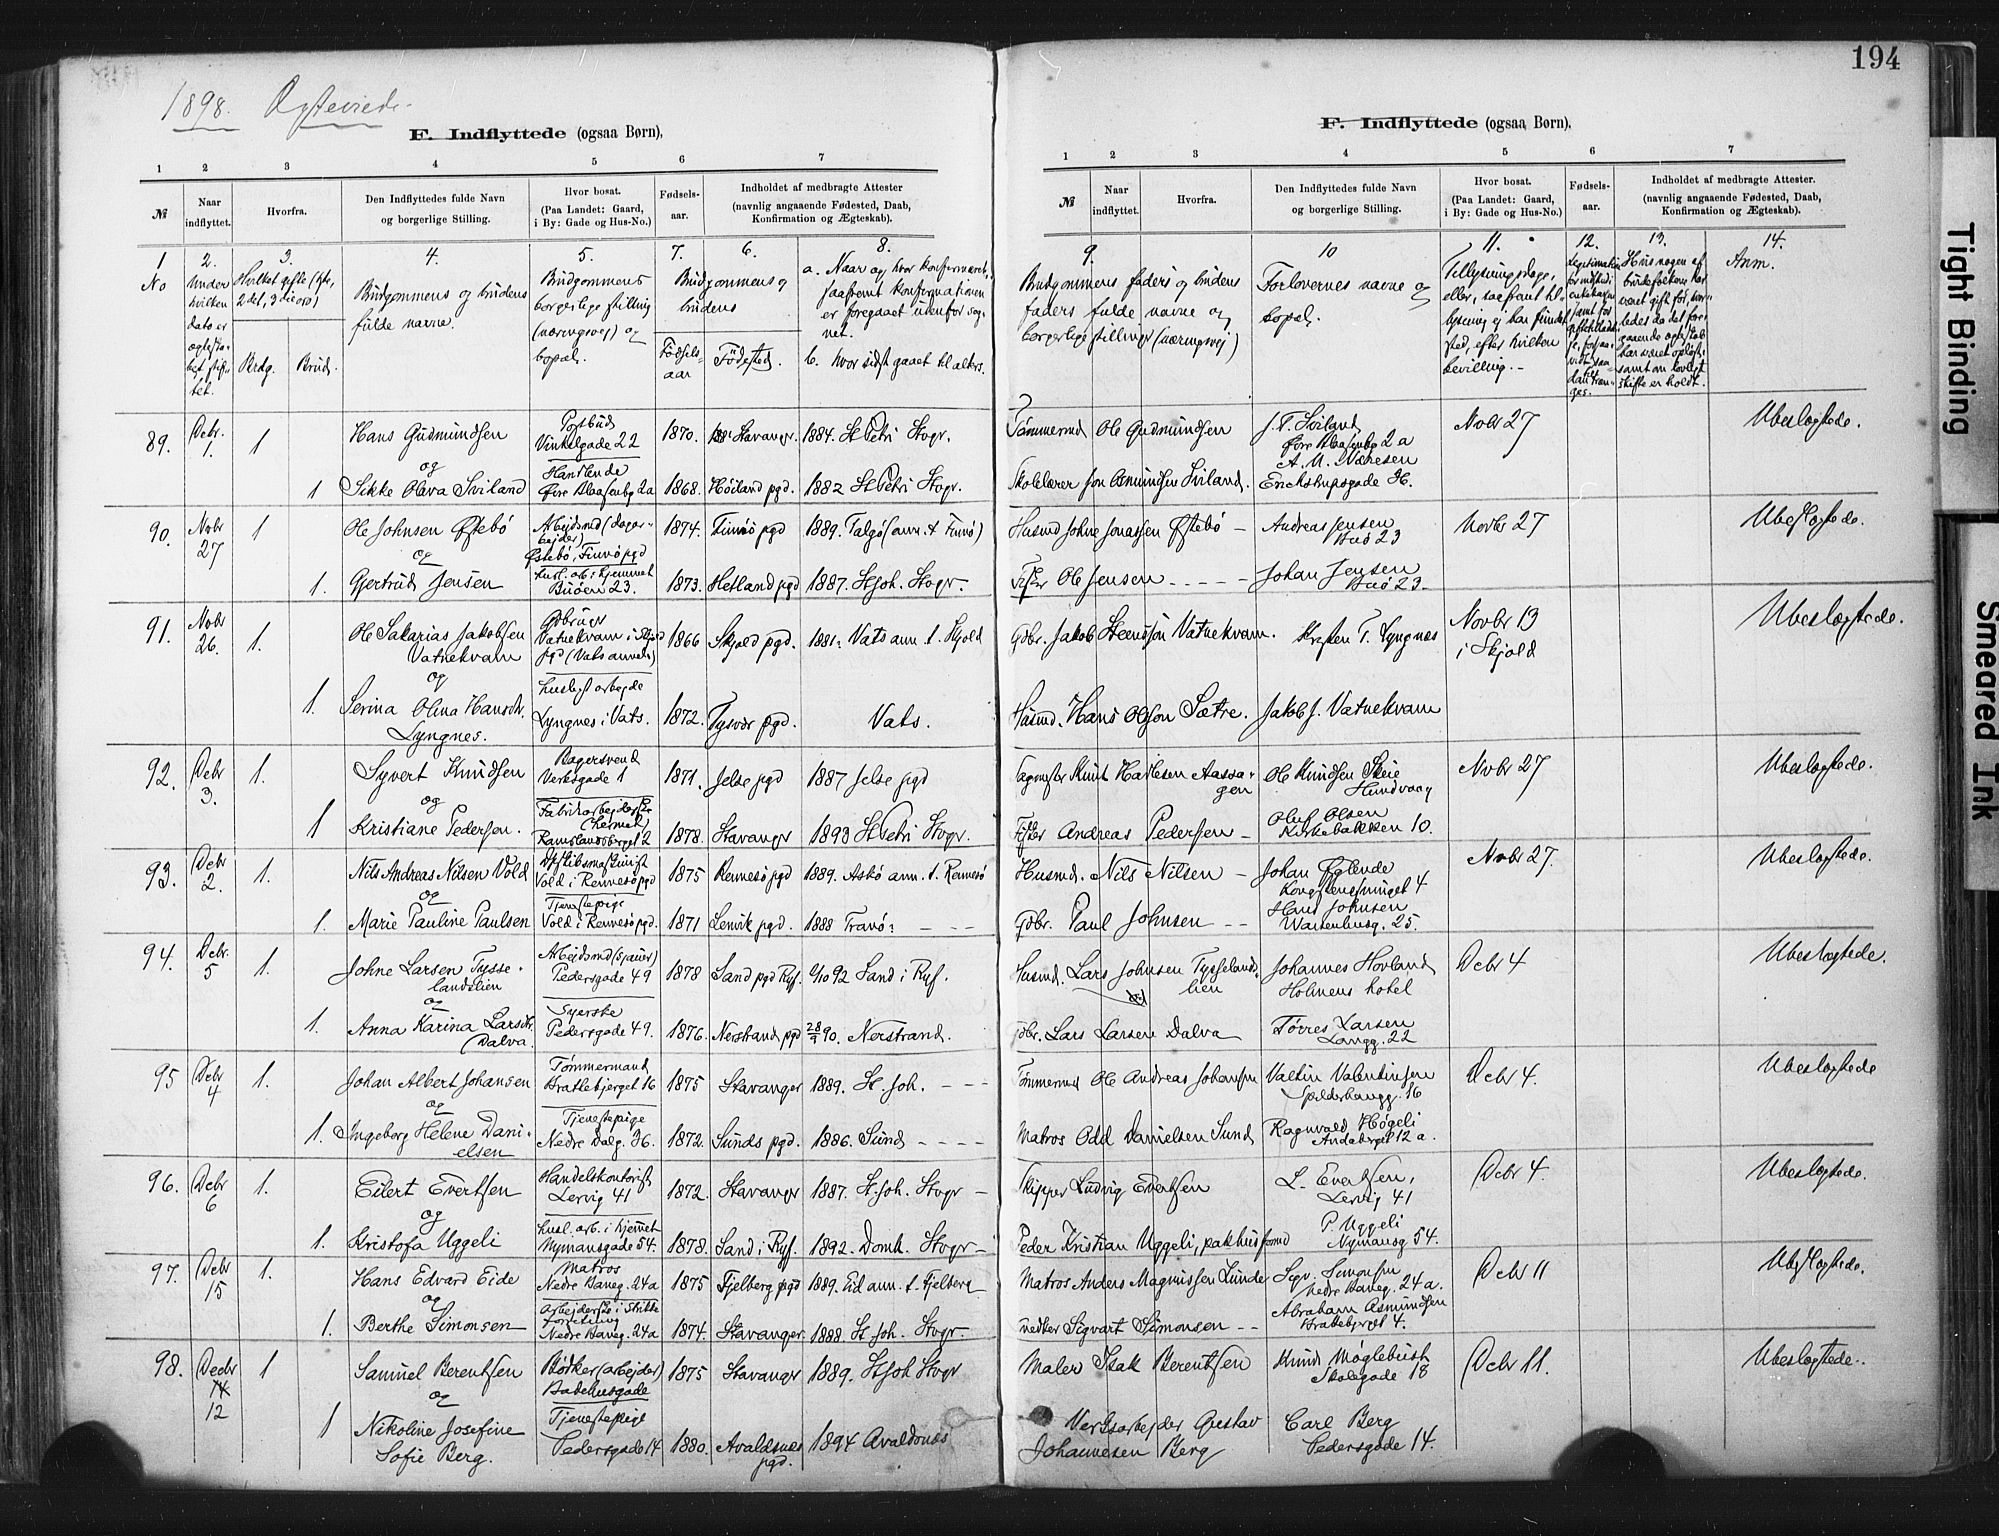 194
1898. Ægteviede.
F. Indflyttede (ogsaa Børn).
1 2 3 4 5 6 7
№
Naar indflyttet.
Hvorfra.
Den Indflyttedes fulde Navn og borgerlige Stilling.
Hvor bosat. (Paa Landet: Gaard, i By: Gade og Hus-No.)
Fødsels-aar.
Indholdet af medbragte Attester (navnlig angaaende Fødested, Daab, Konfirmation og Ægteskab).
1 No
2. Under hvilken dato er ægteska-bet stif-tet.
3. Hvilket gifte (1ste, 2det, 3die osv)
Brdg. Brud.
4. Brudgommens og brudens fulde navne.
5. Brudgommens borgerlige stilling (næringsvej) og bopæl.
7. 6. Brudgommens og brudens
Födsels-aar Födested.
8. a. Naar og hvor konfirmeret, saafremt konfirmationen er foregaaet udenfor sog-net.
b. hvor sidst gaaet til alters.
89. Debr. 1. 1 Hans Gudmundsen Postbud Vinkelgade 22 1870. Stavanger. 1884. St Petri Stvgr.
og
1 Sikke Olava Sviland Handlende Øvre Blaasenbg 2a 1868. Höiland pgd. 1882 St Petri Stvgr.
90. Novbr 27 1 Ole Johnsen Østebö Arbejdsmd (dagar-bejder) Østebö, Finnö pgd 1874. Finnö pgd 1889. Talgö (ann. t Finnö)
og
1. Gjertrud Jensen husl. arb. i hjemmet Buöen 23. 1873. Hetland pgd 1887. St Joh. Stvgr.
91. Novbr 26. 1. Ole Sakarias Jakobsen Vatnekvam Gdbruger Vatnekvam i Skjold pgd (Vats annex) 1866 Skjold pgd. 1881. Vats ann. t. Skjold
og
1. Serina Olina Hansdtr. Lyngnes. husligt arbejde Lyngnes i Vats. 1872. Tysvær pgd. Vats.
92. Debr 3. 1. Syvert Knudsen Bagersvend Verksgade 1 1871. Jelse pgd 1887 Jelse pgd
og
1 Kristiane Pedersen. Fabrikarbejderske (hermet) Ramslandsberget 2 1878. Stavanger 1893 St Petri Stvgr.
93. Debr 2. 1. Nils Andreas Nilsen Vold Vold i Rennesö pgd 1875 Rennesö pgd 1889. Askö ann. t. Rennesö
og
1. Marie Pauline Paulsen Tjenestepige Vold i Rennesö pgd. 1871 Lenvik pgd. 1888 Tranö
94. Debr. 5 1. Johne Larsen Tysse-landslien Arbejdsmd (sjauer) Pedersgade 49 1878 Sand pgd Ryf. 9/10 92 Sand i Ryf.
og
1. Anna Karina Larsdtr. Dalva. Syerske Pedersgade 49. 1876. Nerstrand pgd 28/9 90. Nerstrand.
95 Debr 4 1. Johan Albert Johansen Tømmermand Brattebjerget 16 1875 Stavanger 1889. St. Joh.
og
1. Ingeborg Helene Dani-elsen Tjenestepige Nedre Dalg. 36. 1872. Sunds pgd. 1886. Sund
96. Debr 6 1. Eilert Evertsen Handelskontorist Lervig 41 1872. Stavanger 1887. St. Joh. Stvgr
og
1. Kristofa Uggeli husl. arb. i hjemmet Nymansgade 54. 1878. Sand i Ryf. 1892. Domk. Stvgr
97. Debr 15 1. Hans Edvard Eide Matros Nedre Baneg. 24a 1875 Fjelberg pgd 1889. Eid ann. t. Fjelberg
og
1. Berthe Simonsen Nedre Baneg. 24a 1874. Stavanger. 1888. St Joh. Stvgr.
98. Decbr 14 12 1 Samuel Berentsen Bödker (arbejder) Badehusgade 1875 Stavanger 1889. St Joh Stvgr
og
1 Nikoline Josefine Sofie Berg. Tjenestepige Pedersgade 14 1880. Avaldsnes pgd. 1894 Avaldsnes
F. Indflyttede (ogsaa Børn).
1 2 3 4 5 6 7
№
Naar indflyttet.
Hvorfra.
Den Indflyttedes fulde Navn og borgerlige Stilling.
Hvor bosat. (Paa Landet: Gaard, i By: Gade og Hus-No.)
Fødsels-aar.
Indholdet af medbragte Attester. (navnlig angaaende Fødested, Daab, Konfirmation og Ægteskab).
9. Brudgommens faders og brudens faders fulde navne og borgerlige stilling (næringsvej)
10 Forlovernes navne og bopæl.
11. Tillysningsdage, eller, saafremt til-lysning ej har fundet sted, efter hvilken bevilling.
12.
13. Hvis nogen af brudefolkene har været gift før, hvor-ledes da det fore-gaaende ægteskab har været opløst, samt om lovligt skifte er holdt.
14. Anm.
Tømmermd Ole Gudmundsen J. T. Sviland Øvre Blaasenbg 2a Novbr 27 Ubeslægtede.
Skolelærer Jon Asmundsen Sviland. A. M. Næresen Erichstrupsgade 36.
Husmd Johne Jonassen Østebö Andreas Jensen Buö 23 Novbr 27 Ubeslægtede.
Fisker Ole Jensen Johan Jensen Buö 23
Gdbr. Jakob Steensson Vatnekvam. Kristen T. Lyngnes Novbr 13 i Skjold Ubeslægtede.
Husmd. Hans Olsson Sætre. Jakob J. Vatnekvam
Knut Aassa-gen Ole Knudsen Skeie Hundvaag Novbr 27 Ubeslægtede.
Fisker Andreas Pedersen Oluf Olsen Kirkebakken 10.
Husmd. Nils Nilsen Johan Øglende Kongstensminget 4 Novbr 27. Ubeslægtede.
Gdbr. Paul Johnsen Hans Johnsen 25.
Husmd. Lars Johnsen Tysselands-lien Johannes Hovland Holmens hotel Debr 4 Ubeslægtede.
Gdbr. Lars Larsen Dalva Tórres Larsen Langg. 22
Tømmermd Ole Andreas Johansen Valtin Valentinsen Spilderhaugg. 16 Debr 4. Ubeslægtede
Matros Odd Danielsen Sund Ragnvald Høgeli Andaberget 12 a.
Skipper Ludvig Evertsen L. Evertsen, Lervig 41 Debr 4. Ubeslægtede.
Peder Kristian Uggeli, pakhusformd P. Uggeli Nymansg 54.
Matros Anders Magnussen Lunde Sigv. Simonsen Nedre Baneg. 24 a. Debr 11 Ubeslægtede.
Sigvart Simonsen Abraham Asmundsen Brattebjerget 4.
Maler Isak Berentsen Knud Möglebust Skolegade 18 Debr 11. Ubeslægtede.
Verksarbejder Gustav Johannesen Berg Carl Berg Pedersgade 14.
Tight Binding
Smeared Ink